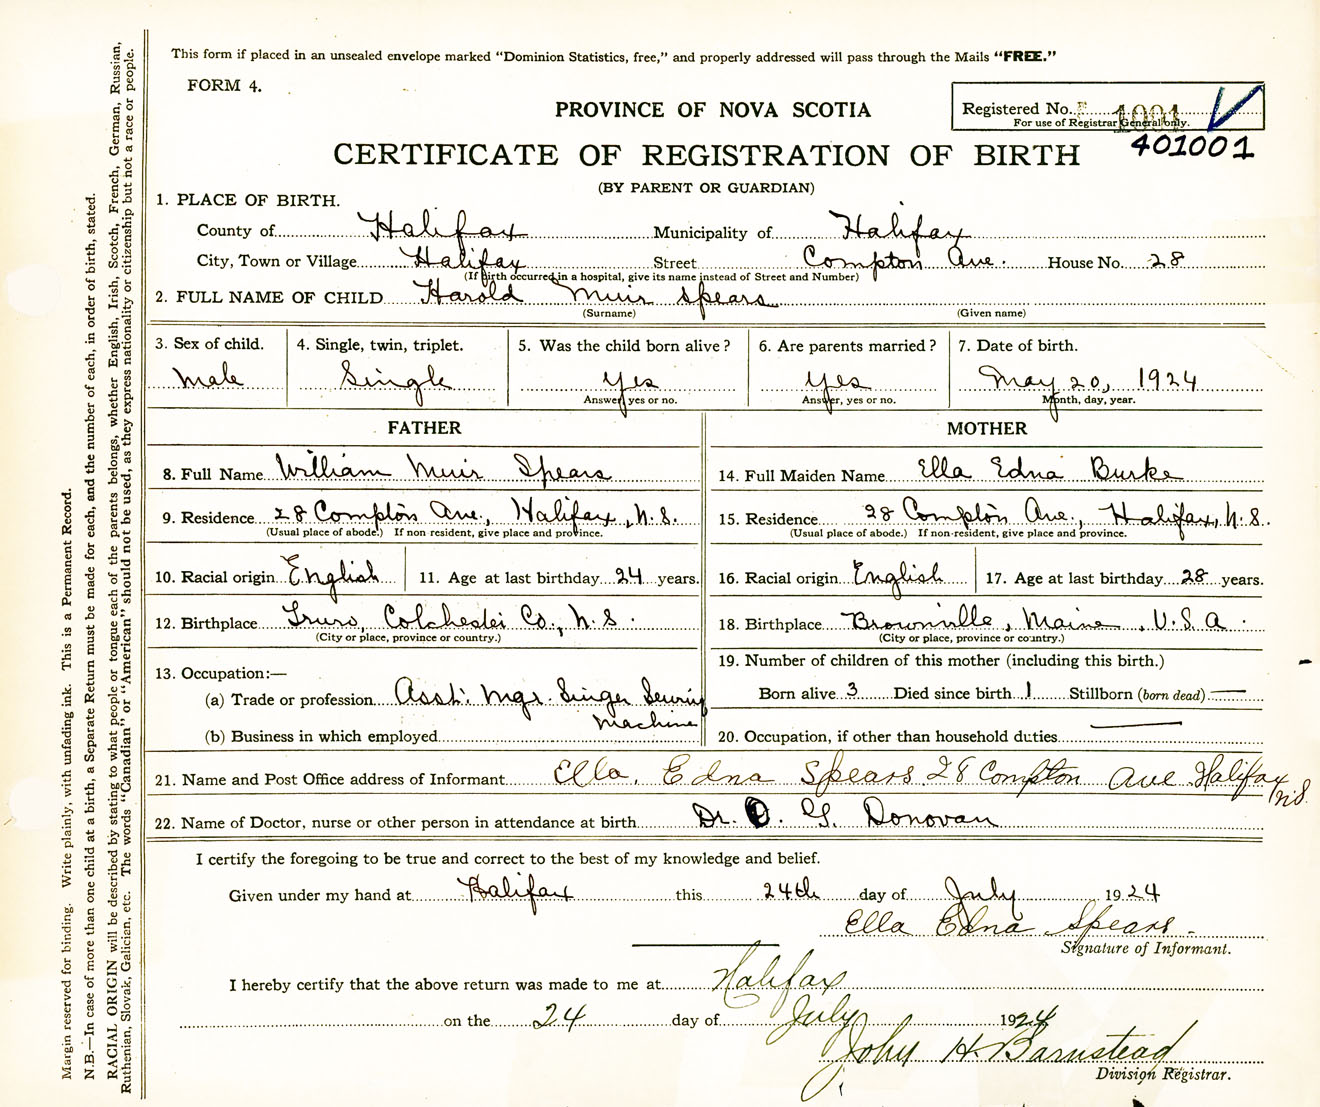 This form if placed in an unsealed envelope marked "Dominion Statistics, free," and properly addressed will pass through the Mails "FREE."
FORM 4.
PROVINCE OF NOVA SCOTIA
Registered No. 1001
For use of Registrar General only.
401001
CERTIFICATE OF REGISTRATION OF BIRTH
(BY PARENT OR GUARDIAN)
1. PLACE OF BIRTH.
County of Halifax Municipality of Halifax
City, Town or Village Halifax Street Compton Ave. House No. 28
(If birth occurred in a hospital, give its name instead of Street and Number)
2. FULL NAME OF CHILD Harold Muir Spears
(Surname) (Given name)
3. Sex of child. 4. Single, twin, triplet. 5. Was the child born alive? 6. Are parents married? 7. Date of birth.
Male Single Yes Yes May 20, 1924
Answer, yes or no. Answer, yes or no. Month, day, year.
FATHER MOTHER
8. Full Name William Muir Spears 14. Full Maiden Name Ella Edna Burke
9. Residence 28 Compton Ave., Halifax, N.S. 15. Residence 28 Compton Ave., Halifax, N.S.
(Usual place of abode.) If non-resident, give place and province. (Usual place of abode.) If non-resident, give place and province.
10. Racial origin English 11. Age at last birthday 24 years. 16. Racial origin English 17. Age at last birthday 28 years.
12. Birthplace Truro, Colchester Co., N.S. 18. Birthplace Brownville, Maine, U.S.A.
(City or place, province or country.) (City or place, province or country.)
13. Occupation:— 19. Number of children of this mother (including this birth.)
(a) Trade or profession Asst. Mgr. Singer Sewing Machine Born alive 3 Died since birth 1 Stillborn (born dead) —
(b) Business in which employed 20. Occupation, if other than household duties —
21. Name and Post Office address of Informant Ella, Edna Spears 28 Compton Ave Halifax N.S.
22. Name of Doctor, nurse or other person in attendance at birth Dr. O. G. Donovan
I certify the foregoing to be true and correct to the best of my knowledge and belief.
Given under my hand at Halifax this 24th day of July 1924
Ella Edna Spears.
Signature of Informant.
I hereby certify that the above return was made to me at Halifax
on the 24 day of July 1924
John H. Barnstead
Division Registrar.
Margin reserved for binding. Write plainly, with unfading ink. This is a Permanent Record.
N.B.—In case of more than one child at a birth, a Separate Return must be made for each, and the number of each, in order of birth, stated.
RACIAL ORIGIN will be described by stating to what people or tongue each of the parents belongs, whether English, Irish, Scotch, French, German, Russian,
Ruthenian, Slovak, Galician, etc. The words "Canadian" or "American" should not be used, as they express nationality or citizenship but not a race or people.